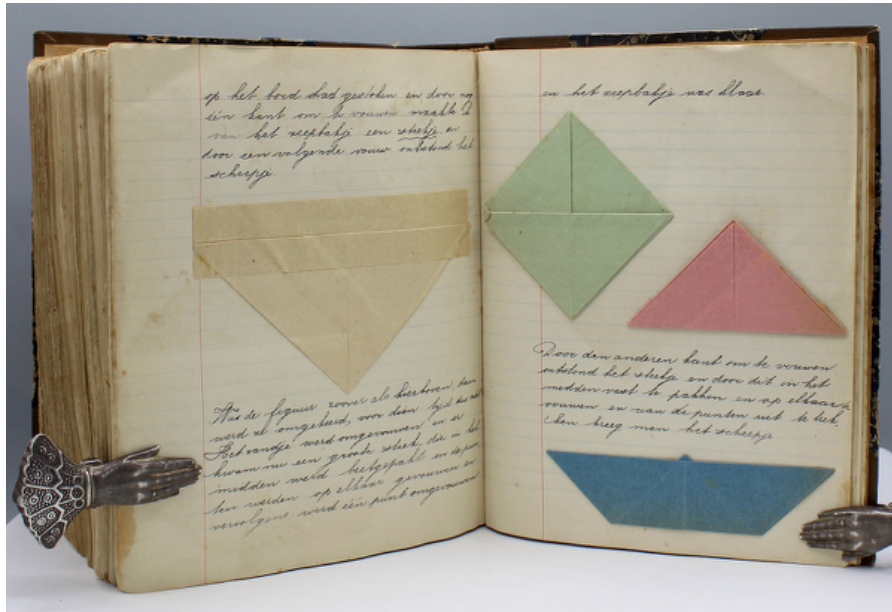 op het bord had gestoken en door nog
één kant om te vouwen maakte ik
van het zeepbakje een steekje en
door een volgende vouw ontstond het
scheepje.
Was de figuur zoover als hierboven, dan
werd ze omgekeerd, voor dien tijd
Het randje werd omgevouwen en er
kwam nu een groote steek, die in het
midden werd beetgepakt en de punten
werden op elkaar gevouwen en
vervolgens werd één punt omgevouwen
en het zeepbakje was klaar.
Door den anderen kant om te vouwen
ontstond het steekje en door dit in het
midden vast te pakken en op elkaar te
vouwen en aan de punten uit te trek,
ken kreeg men het scheepje